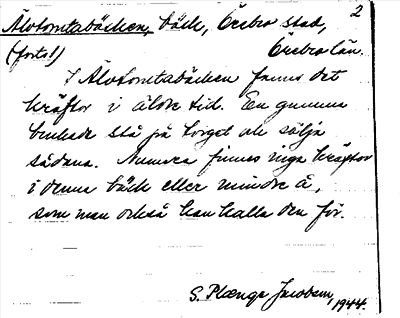 2
Älvtomtabäcken, bäck, Örebro stad,
(forts!) Örebro län.
I Älvtomtabäcken fanns det
kräftor i äldre tid. En gumma
brukade stå på torget och sälja
sådana. Numera finnes inga kräftor
i denna bäck eller mindre å,
som man också kan kalla den för.
S. Plænge Jacobson, 1944.